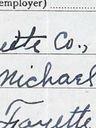 employer)
ette Co.,
Michael
Fayette